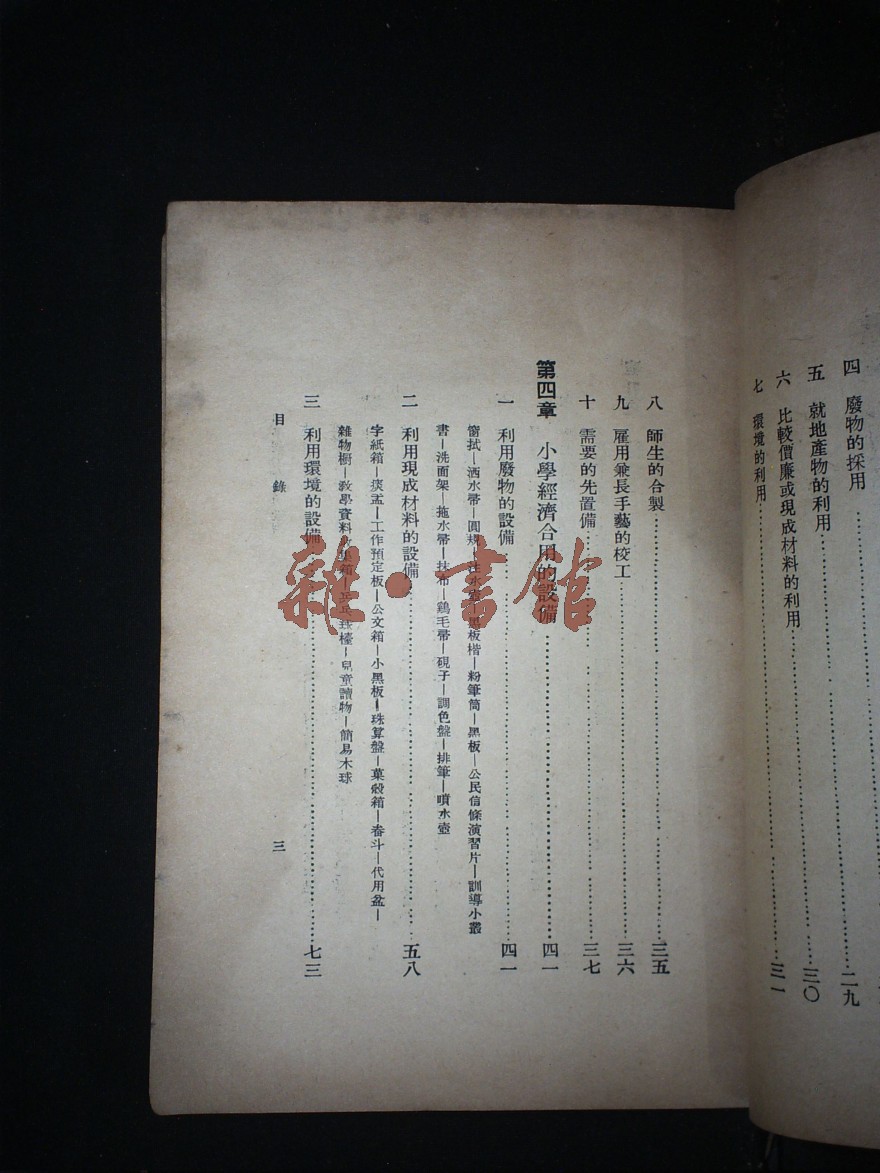 四 廢物的採用……二九
五 就地產物的利用……三〇
六 比較價廉或現成材料的利用……三一
七 環境的利用……
八 師生的合製……三五
九 雇用兼長手藝的校工……三六
十 需要的先置備……三七
第四章 小學經濟合用的設備……四一
一 利用廢物的設備……四一
窗拭—洒水帚—圓規—注水壺—黑板楷—粉筆筒—黑板—公民信條演習片—訓導小叢
書—洗面架—拖水帚—抹布—鷄毛帚—硯子—調色盤—排筆—噴水壺
二 利用現成材料的設備……五八
字紙箱—痰盂—工作預定板—公文箱—小黑板—珠算盤—菓殼箱—畚斗—代用盆—
雜物櫥—教學資料集箱—乒乓球檯—兒童讀物—簡易木球
三 利用環境的設備……七三
目錄
三
雜·書館